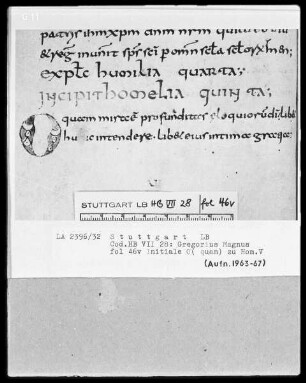 patrem ihm xpm dnm nrm qui cu
& reg inunit sps sci p omn scla sclorum am;
explic humilia quarta;
incipit homelia quinta;
O quam mira e profunditas eloquioru di libe
huic intendere. libe eius intima graq;
STUTTGART LB HB VII 28 fol 46v
LA 2396/32 Stuttgart LB
Cod.HB VII 28: Gregorius Magnus
fol 46v Initiale O( quam) zu Hom.V
(Aufn.1963-67)